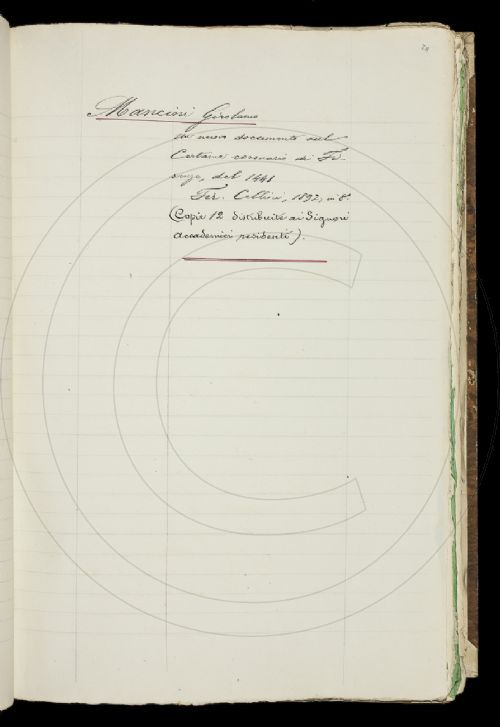 29
Mancini Girolamo
Un nuovo documento sul
Certame coronario di Fi-
renze, del 1441
Fir. Cellini, 1892, in 8°
(Copie 12 distribuite ai Signori
accademici residenti).